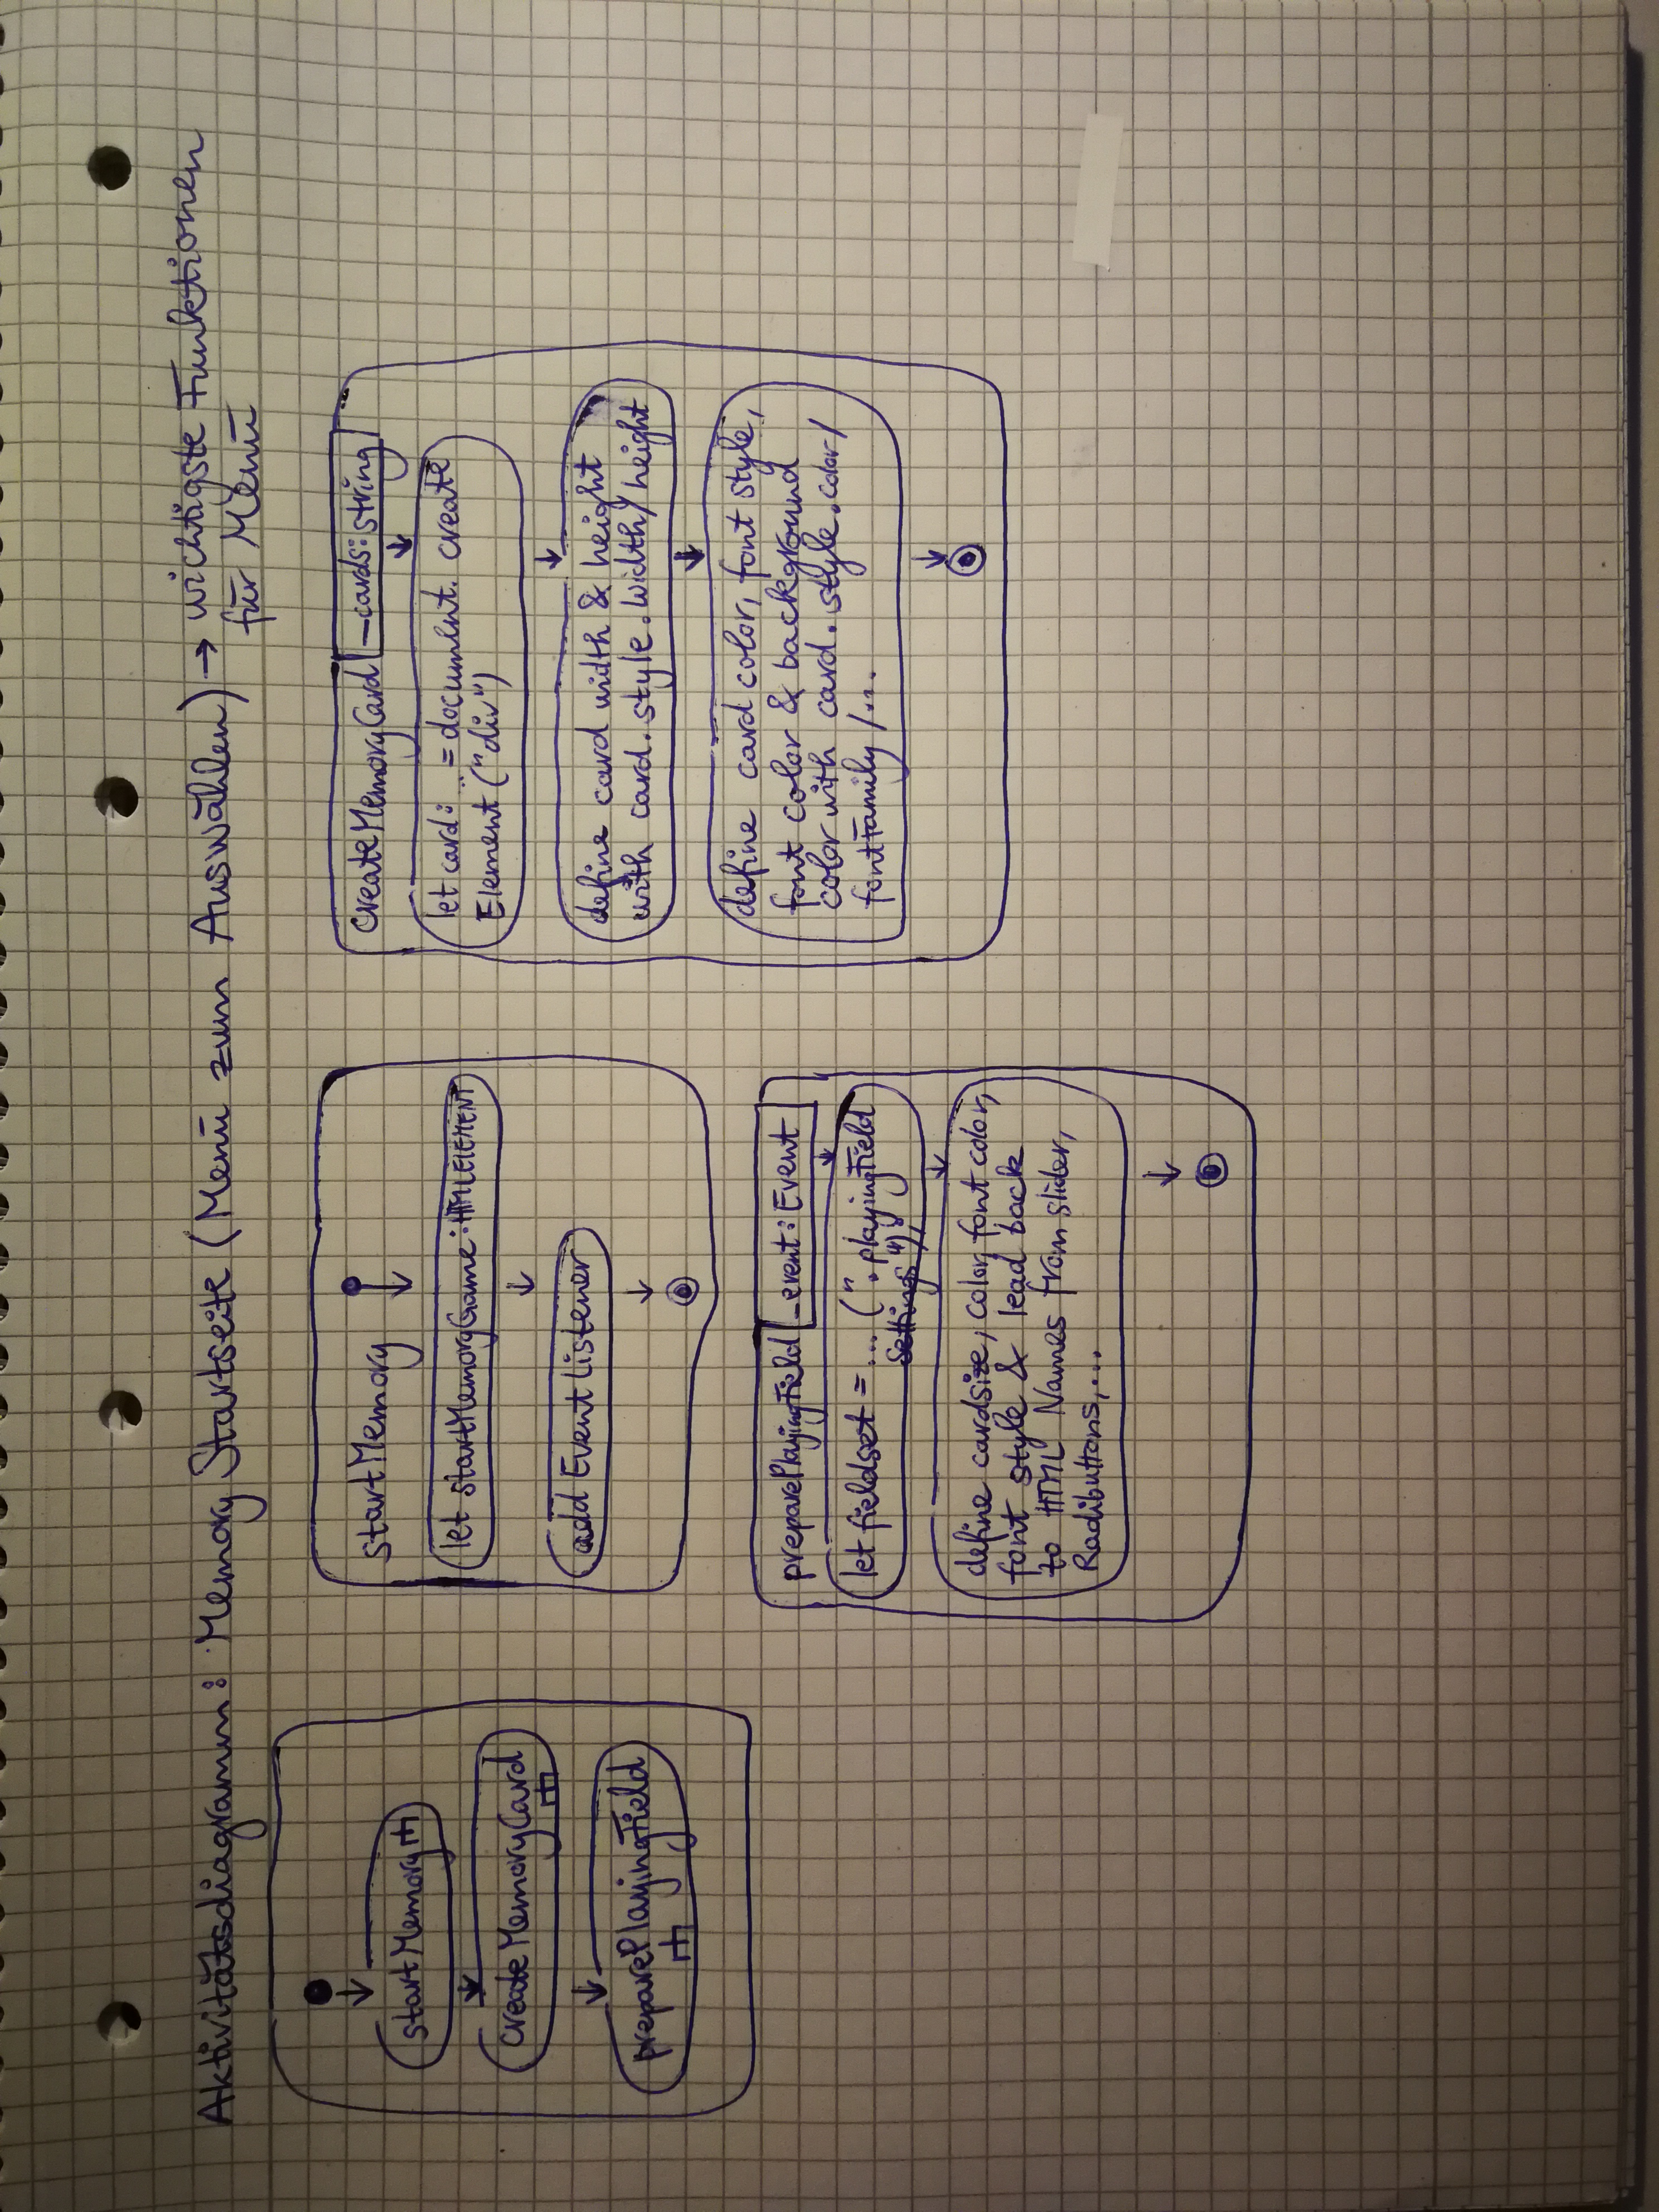 Aktivitätsdiagramm: Memory Startseite (Menü zum Auswählen) → wichtigste Funktionen
für Menü
startMemory
createMemoryCard
preparePlayingField
startMemory
let startMemoryGame: HTMLELEMENT
add Event Listener
preparePlayingField _event: Event
let fieldset = ... (". playingField
Settings")
define cardsize, color, font color,
font style & lead back
to HTML Names from slider,
Radibuttons, ...
createMemoryCard _cards: string
let card: .. = document. create
Element ("div")
define card width & height
with card.style.width/height
define card color, font style,
font color & background
color with card.style.color/
fontFamily/...